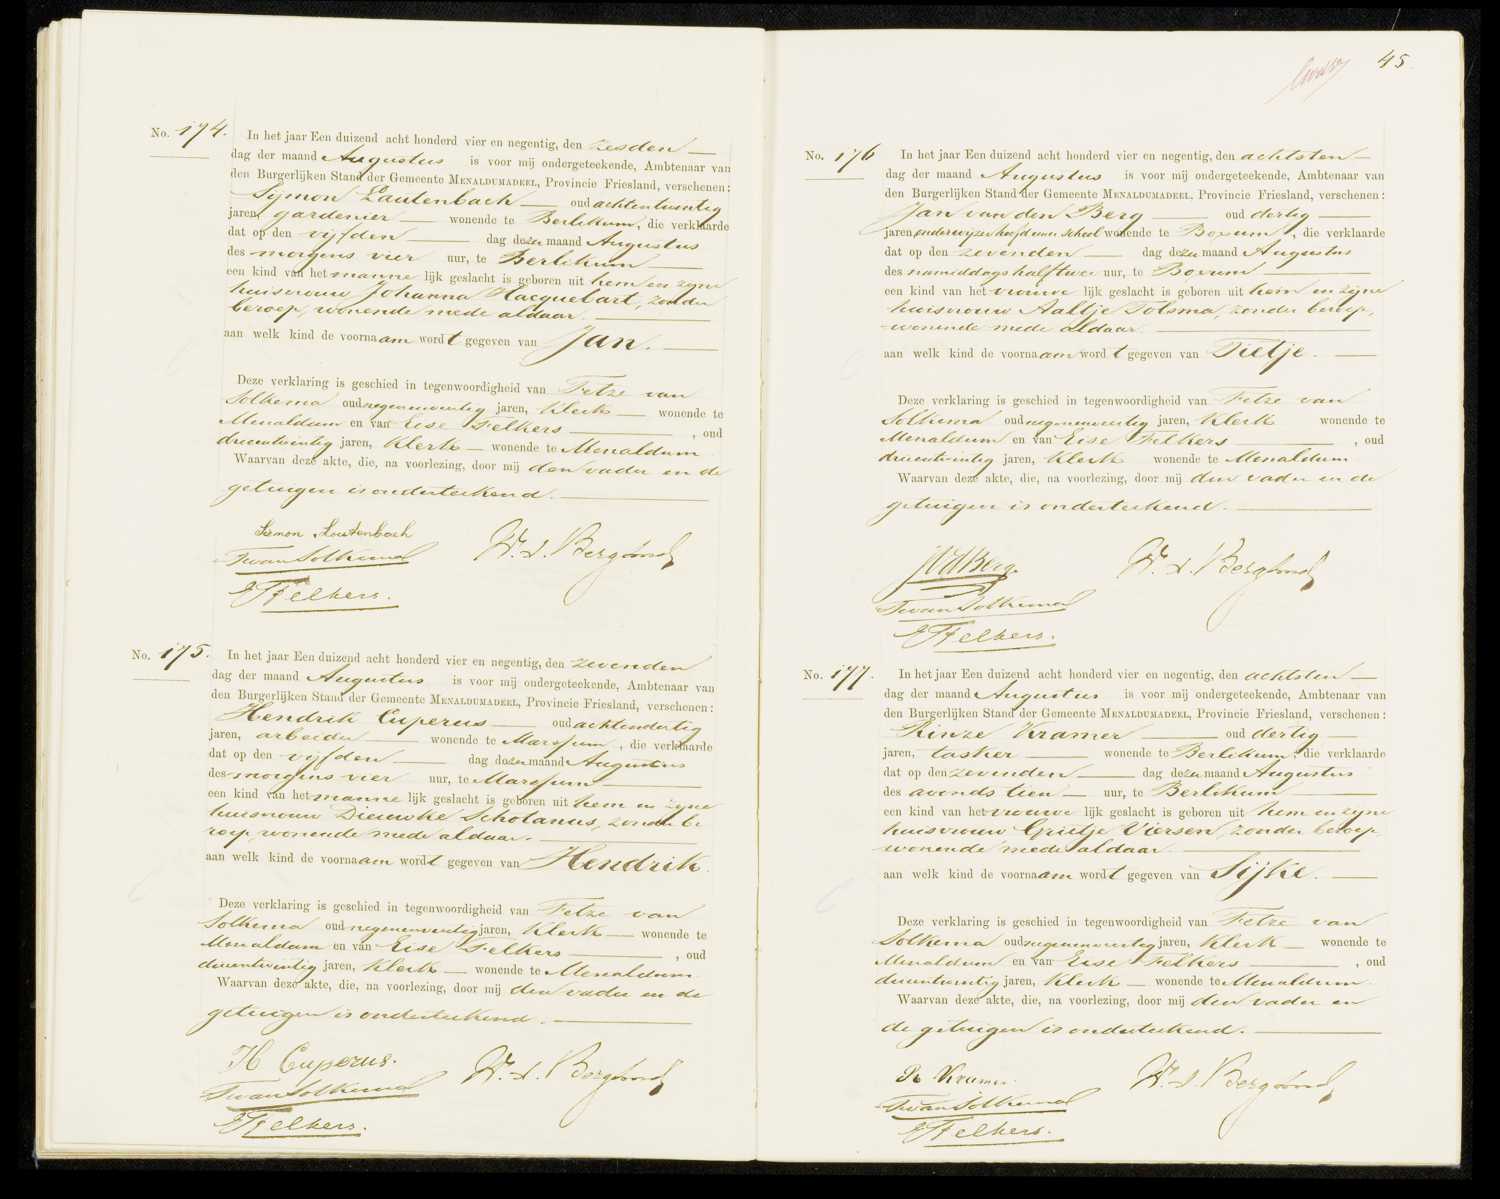 No. 174. In het jaar Een duizend acht honderd vier en negentig, den zesden
dag der maand Augustus is voor mij ondergeteekende, Ambtenaar van
den Burgerlijken Stand der Gemeente MENALDUMADEEL, Provincie Friesland, verschenen:
Sijmon Lautenbach oud achtentwintig
jaren, gardenier wonende te Berlikum, die verklaarde
dat op den vijfden dag dezer maand Augustus
des morgens vier uur, te Berlikum
een kind van het manne lijk geslacht is geboren uit hem en zijne
huisvrouw Johanna Hacquebart, zonder
beroep, wonende mede aldaar.
aan welk kind de voornaam wordt gegeven van Jan.
Deze verklaring is geschied in tegenwoordigheid van Fetze van
Solkema oud negenenveertig jaren, Klerk wonende te
Menaldum en van Eise Felkers , oud
drieentwintig jaren, Klerk wonende te Menaldum.
Waarvan deze akte, die, na voorlezing, door mij den vader en de
getuigen is onderteekend.
Siemon Loutenbach
FvanSolkema
EFelkers.
No. 175. In het jaar Een duizend acht honderd vier en negentig, den zevenden
dag der maand Augustus is voor mij ondergeteekende, Ambtenaar van
den Burgerlijken Stand der Gemeente MENALDUMADEEL, Provincie Friesland, verschenen:
Hendrik Cuperus oud achtendertig
jaren, arbeider wonende te Marssum, die verklaarde
dat op den vijfden dag dezer maand Augustus
des morgens vier uur, te Marssum
een kind van het manne lijk geslacht is geboren uit hem en zijne
huisvrouw Dieuwke Scholanus, zonder be
roep, wonende mede aldaar.
aan welk kind de voornaam wordt gegeven van Hendrik.
Deze verklaring is geschied in tegenwoordigheid van Fetze van
Solkema oud negenenveertig jaren, Klerk wonende te
Menaldum en van Eise Felkers , oud
drieentwintig jaren, Klerk wonende te Menaldum.
Waarvan deze akte, die, na voorlezing, door mij den vader en de
getuigen is onderteekend.
H Cuperus.
FvanSolkema
EFelkers.
45.
No. 176 In het jaar Een duizend acht honderd vier en negentig, den achtsten
dag der maand Augustus is voor mij ondergeteekende, Ambtenaar van
den Burgerlijken Stand der Gemeente MENALDUMADEEL, Provincie Friesland, verschenen:
Jan van den Berg oud dertig
jaren, onderwijzer hoofd eener school wonende te Boxum, die verklaarde
dat op den zevenden dag dezer maand Augustus
des namiddags half twee uur, te Boxum
een kind van het vrouwe lijk geslacht is geboren uit hem en zijne
huisvrouw Aaltje Tolsma, zonder beroep,
wonende mede aldaar.
aan welk kind de voornaam wordt gegeven van Tietje.
Deze verklaring is geschied in tegenwoordigheid van Fetze van
Solkema oud negenenveertig jaren, Klerk wonende te
Menaldum en van Eise Felkers , oud
drieentwintig jaren, Klerk wonende te Menaldum
Waarvan deze akte, die, na voorlezing, door mij den vader en de
getuigen is onderteekend.
JVdBerg.
FvanSolkema
EFelkers.
No. 177. In het jaar Een duizend acht honderd vier en negentig, den achtsten
dag der maand Augustus is voor mij ondergeteekende, Ambtenaar van
den Burgerlijken Stand der Gemeente MENALDUMADEEL, Provincie Friesland, verschenen:
Rinze Kramer oud dertig
jaren, tasker wonende te Berlikum, die verklaarde
dat op den zevenden dag dezer maand Augustus
des avonds tien uur, te Berlikum
een kind van het vrouwe lijk geslacht is geboren uit hem en zijne
huisvrouw Grietje Viersen, zonder beroep,
wonende mede aldaar.
aan welk kind de voornaam wordt gegeven van Sijke.
Deze verklaring is geschied in tegenwoordigheid van Fetze van
Solkema oud negenenveertig jaren, Klerk wonende te
Menaldum en van Eise Felkers , oud
drieentwintig jaren, Klerk wonende te Menaldum.
Waarvan deze akte, die, na voorlezing, door mij den vader en
de getuigen is onderteekend.
R Kramer.
FvanSolkema
EFelkers.